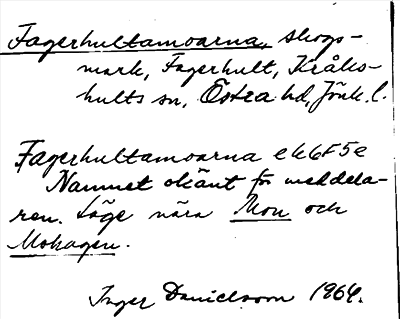 Fagerhultamoarna, skogs-
mark, Fagerhult, Kråks-
hults sn, Östra hd, Jönk. l.
Fagerhultamoarna ek6F5e
Namnet okänt för meddela-
ren. Läge nära Mon och
Mohagen.
Inger Danielsson 1964.